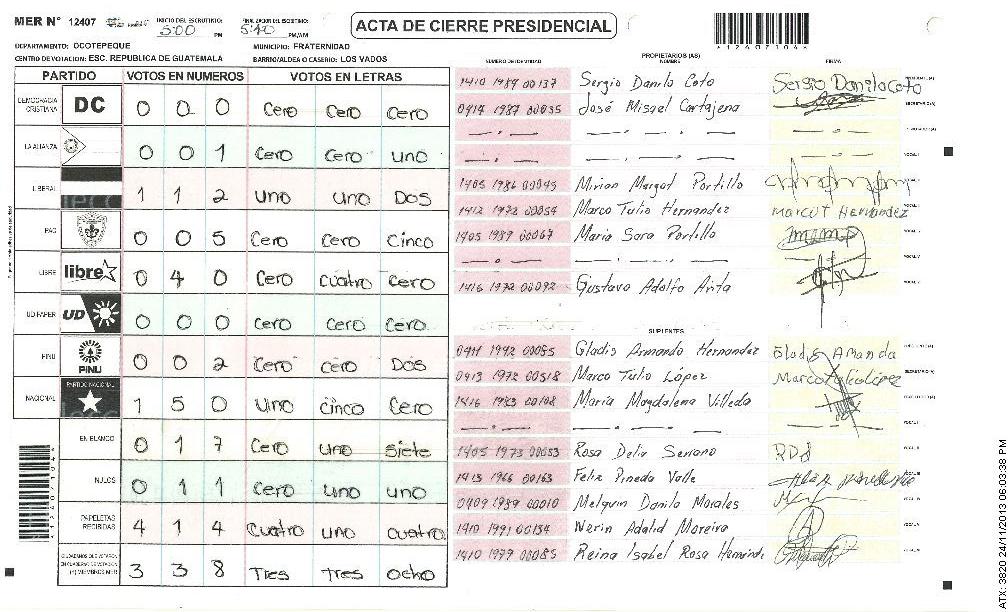 MER N° 12407 INICIO DEL ESCRUTINIO: 5:00 PM FINALIZACION DEL ESCRUTINIO: 5:40 PM/AM ACTA DE CIERRE PRESIDENCIAL
DEPARTAMENTO: OCOTEPEQUE MUNICIPIO: FRATERNIDAD
CENTRO DE VOTACION: ESC. REPUBLICA DE GUATEMALA BARRIO/ALDEA O CASERIO: LOS VADOS
PARTIDO VOTOS EN NUMEROS VOTOS EN LETRAS
DEMOCRACIA CRISTIANA DC 0 0 0 Cero Cero Cero
LA ALIANZA 0 0 1 Cero Cero uno
LIBERAL 1 1 2 uno uno Dos
PAC 0 0 5 Cero Cero Cinco
LIBRE libre 0 4 0 Cero cuatro Cero
UD FAPER UD 0 0 0 Cero Cero Cero
PINU PINU 0 0 2 Cero Cero Dos
NACIONAL PARTIDO NACIONAL 1 5 0 Uno cinco Cero
EN BLANCO 0 1 7 Cero uno siete
NULOS 0 1 1 Cero uno uno
PAPELETAS RECIBIDAS 4 1 4 cuatro uno cuatro
CIUDADANOS QUE VOTARON EN CUADERNO DE VOTACION (+) MIEMBROS MER 3 3 8 Tres Tres ocho
PROPIETARIOS (AS)
NUMERO DE IDENTIDAD NOMBRE FIRMA
1410 1989 00137 Sergio Danilo Coto Sergio Danilo Coto PRESIDENTE (A)
0414 1987 00035 José Misael Cartajena SECRETARIO (A)
1405 1986 00045 Mirian Margot Portillo
1412 1972 00054 Marco Tulio Hernandez Marco T Hernandez
1405 1987 00067 Maria Sara Portillo
1416 1972 00092 Gustavo Adolfo Arita
SUPLENTES
0411 1992 00085 Gladis Armando Hernandez
0413 1972 00518 Marco Tulio López Marco Tulio López
1416 1983 00108 Maria Magdalena Villeda
1405 1973 00053 Rosa Delia Serrano RDS
1413 1966 00163 Feliz Pineda Valle
0409 1989 00010 Melquin Danilo Morales
1410 1991 00134 Nerin Adalid Moreira
1410 1977 00085 Reina Isabel Rosa Hernández
ATX: 3820 24/11/2013 06:03:38 PM